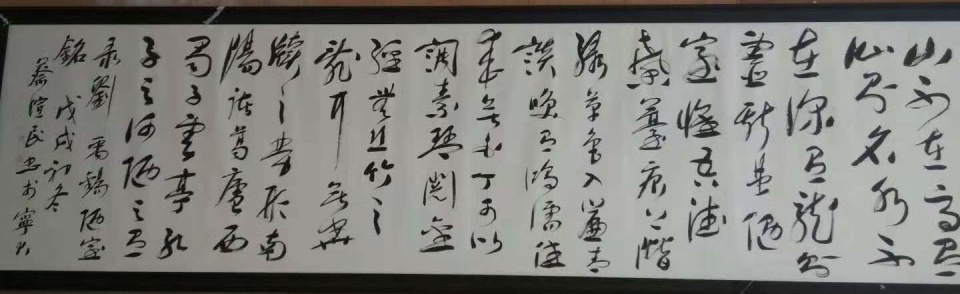 山不在高有
仙則名水不
在深有龍則
靈斯是陋
室惟吾德
馨苔痕上階
綠草色入簾青
談笑有鴻儒往
來無白丁可以
調素琴閱金
經無絲竹之
亂耳無案
牘之勞形南
陽諸葛廬西
蜀子雲亭孔
子云何陋之有
录劉禹錫陋室
銘 戊戌初冬
民書於寧